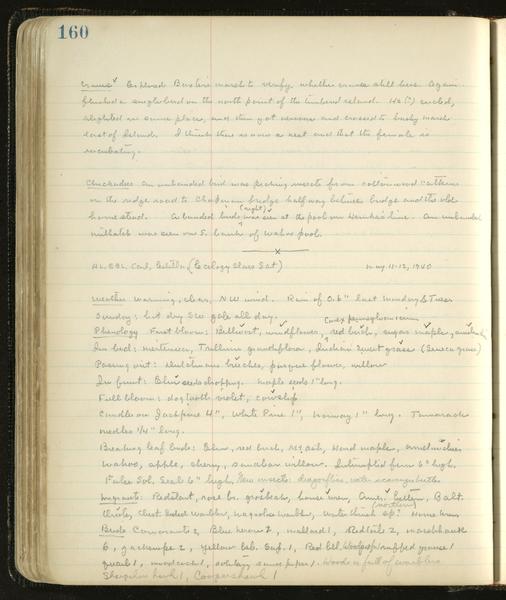 160
Cranes Explored Buxton's marsh to verify whether cranes still here. Again
flushed a single bird on the north point of the timbered island. He (?) circled,
alighted in same place, and then got nervous and crossed to bushy marsh
east of island. I think there is now a nest and that the female is
incubating.
Chickadees An unbanded bird was picking insects from cottonwood catkins
on the ridge road to Chapman bridge half way between bridge and the old
homestead. A banded bird (right) was seen at the pool on line. An unbanded
was seen on S. bank of Wahoo pool.
x
AL, EBL, Carl, Estella, (Ecology Class Sat) May 11-12, 1940
Weather warming, clear, NW wind. Rain of 0.6" last Monday & Tues
Sunday: hot dry SW gale all day.
Carex pennsylvanicum
Phenology First bloom: Bellwort, windflower, red bush, sugar maple,
In bud: Trillium grandiflorum, Indian Sweet grass (Seneca grass)
Passing out: dutchmans breeches, pasque flower, willow
In fruit: Elm seeds dropping. Maple seeds 1" long.
Full bloom: dog tooth violet, cowslip
Candles on Jackpine 4", White Pine 1", Norway 1" long. Tamarack
needles 1/4" long.
Breaking leaf buds: Elm, red bush, ash, Hard maple,
Wahoo, apple, cherry, sandbar willow. Interrupted fern 6" high.
False Sol. Seal 6" high. New insects: dragonflies, water
Migrants: Redstart, rose br. grosbeak, house wren, Amer. bittern, Balt.
Oriole, Chest. sided warbler, magnolia warbler, water thrush (northern) sp?
Birds Cormorants 2, Blue heron 2, mallard 1, Redtails 2, marsh hawk
6, jacksnipe 2, Yellow Leb. Sap. 1, Red Bel. Woodpeck, ruffed grouse 1
quail 1, woodcock 1, solitary sandpiper 1. Woods is full of warblers
Sharpshin hawk 1, Coopers hawk 1